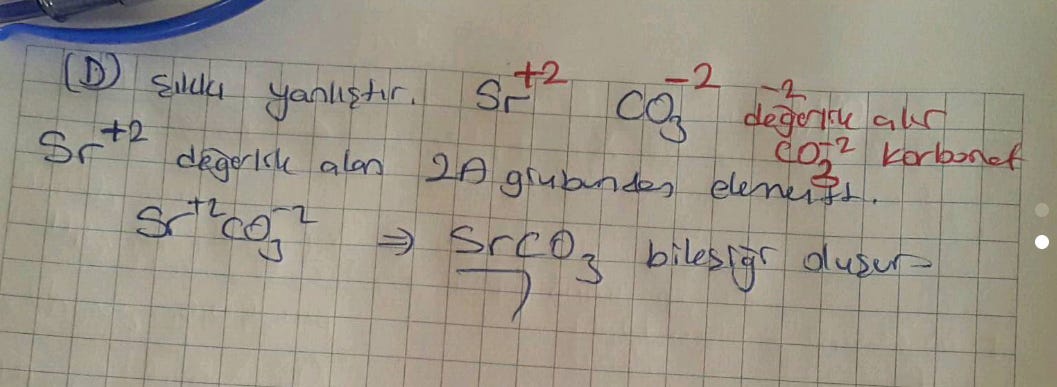 (D) şıkkı yanlıştır. Sr⁺² CO₃⁻² ⁻² değerlik alır
CO₃⁻² karbonat
Sr⁺² değerlik alan 2A grubundan element.
Sr⁺²CO₃⁻² ⇒ SrCO₃ bileşiği oluşur